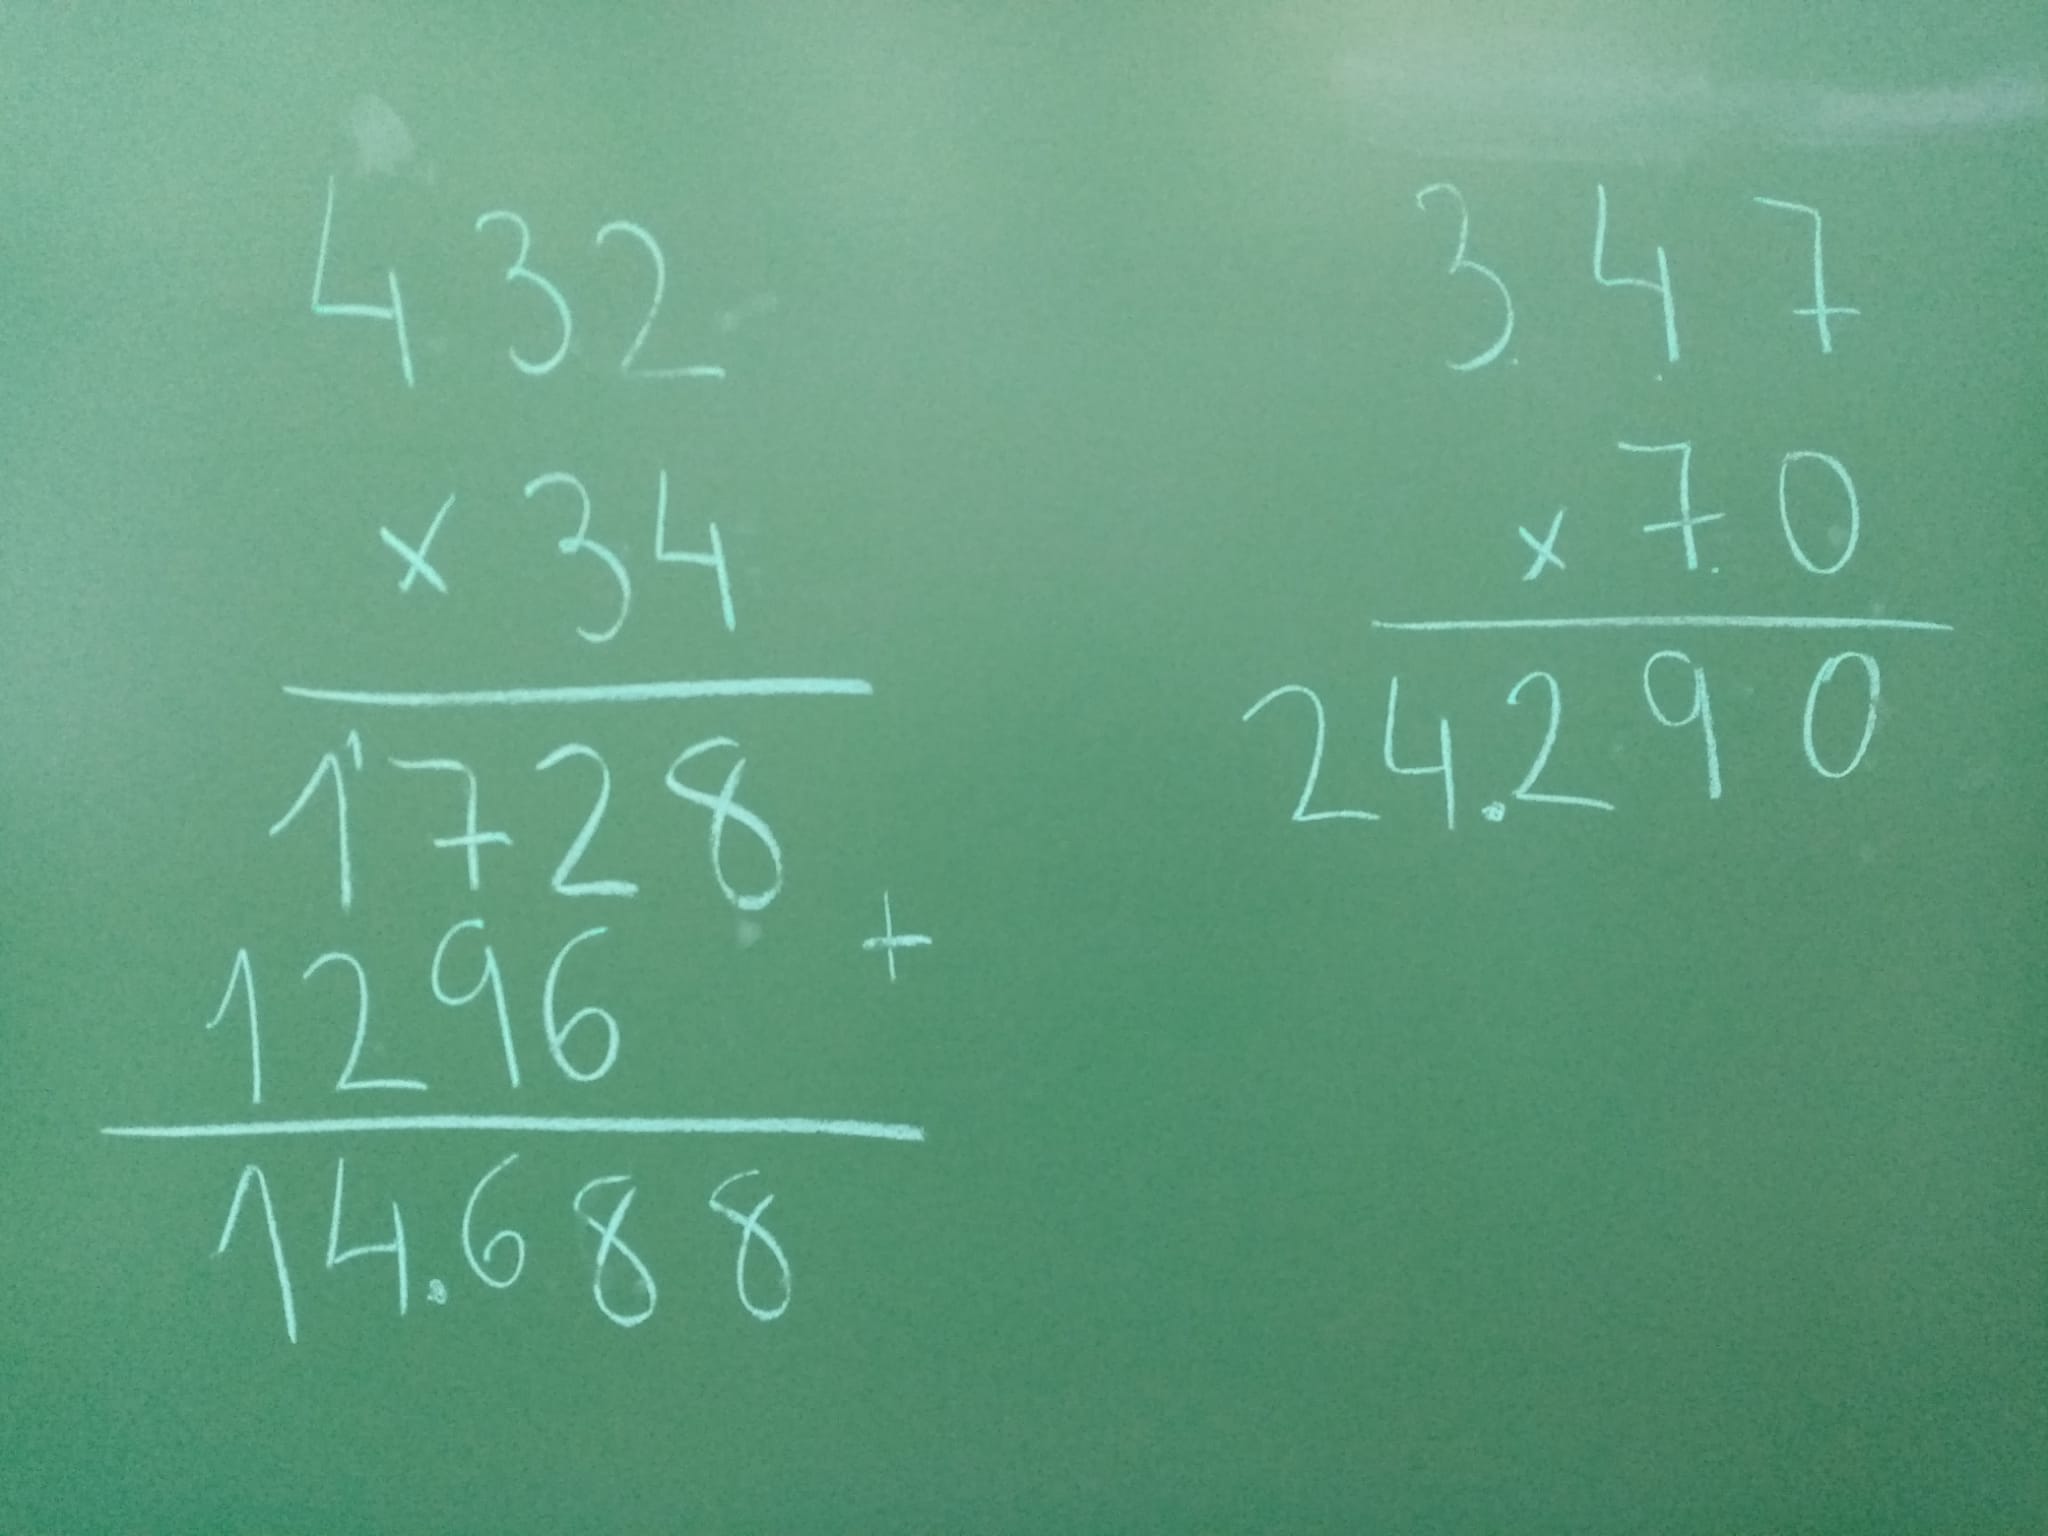 432
x 34
1728
1296 +
14.688
347
x 70
24.290